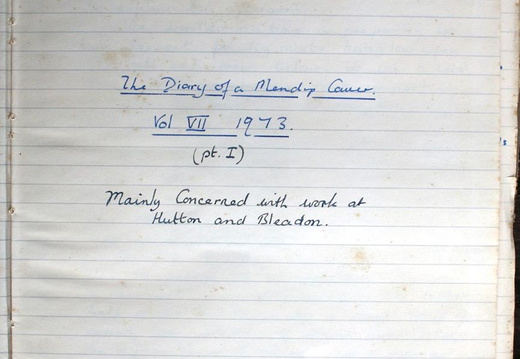 The Diary of a Mendip Caver.
Vol VII 1973.
(pt. I)
Mainly Concerned with work at
Hutton and Bleadon.